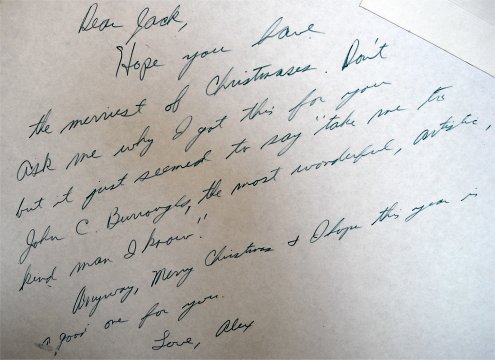 Dear Jack,
Hope you have
the merriest of Christmases. Don't
ask me why I got this for you
but it just seemed to say "take me to
John C. Burroughs, the most wonderful, artistic,
kind man I know."
Anyway, Merry Christmas & I hope this year is
a good one for you.
Love, Alex